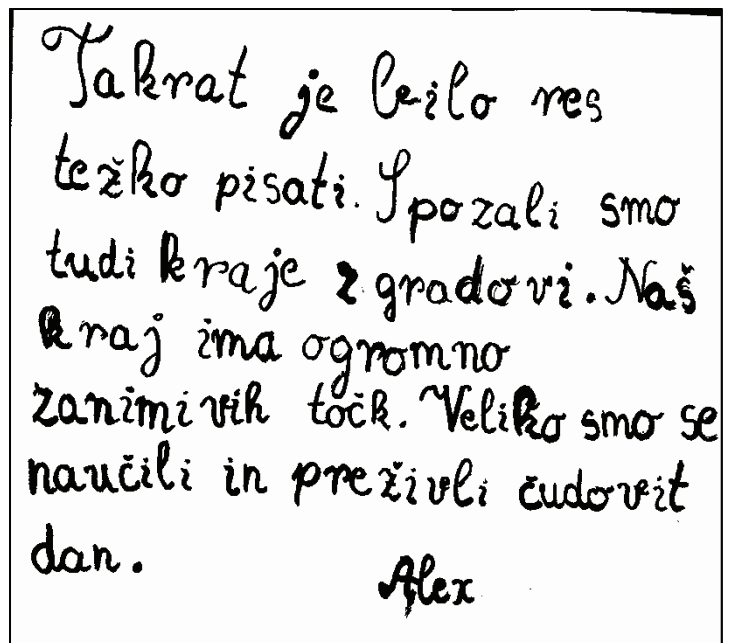 Takrat je bilo res
težko pisati. Spozali smo
tudi kraje z gradovi. Naš
kraj ima ogromno
zanimivih točk. Veliko smo se
naučili in preživli čudovit
dan.
Alex